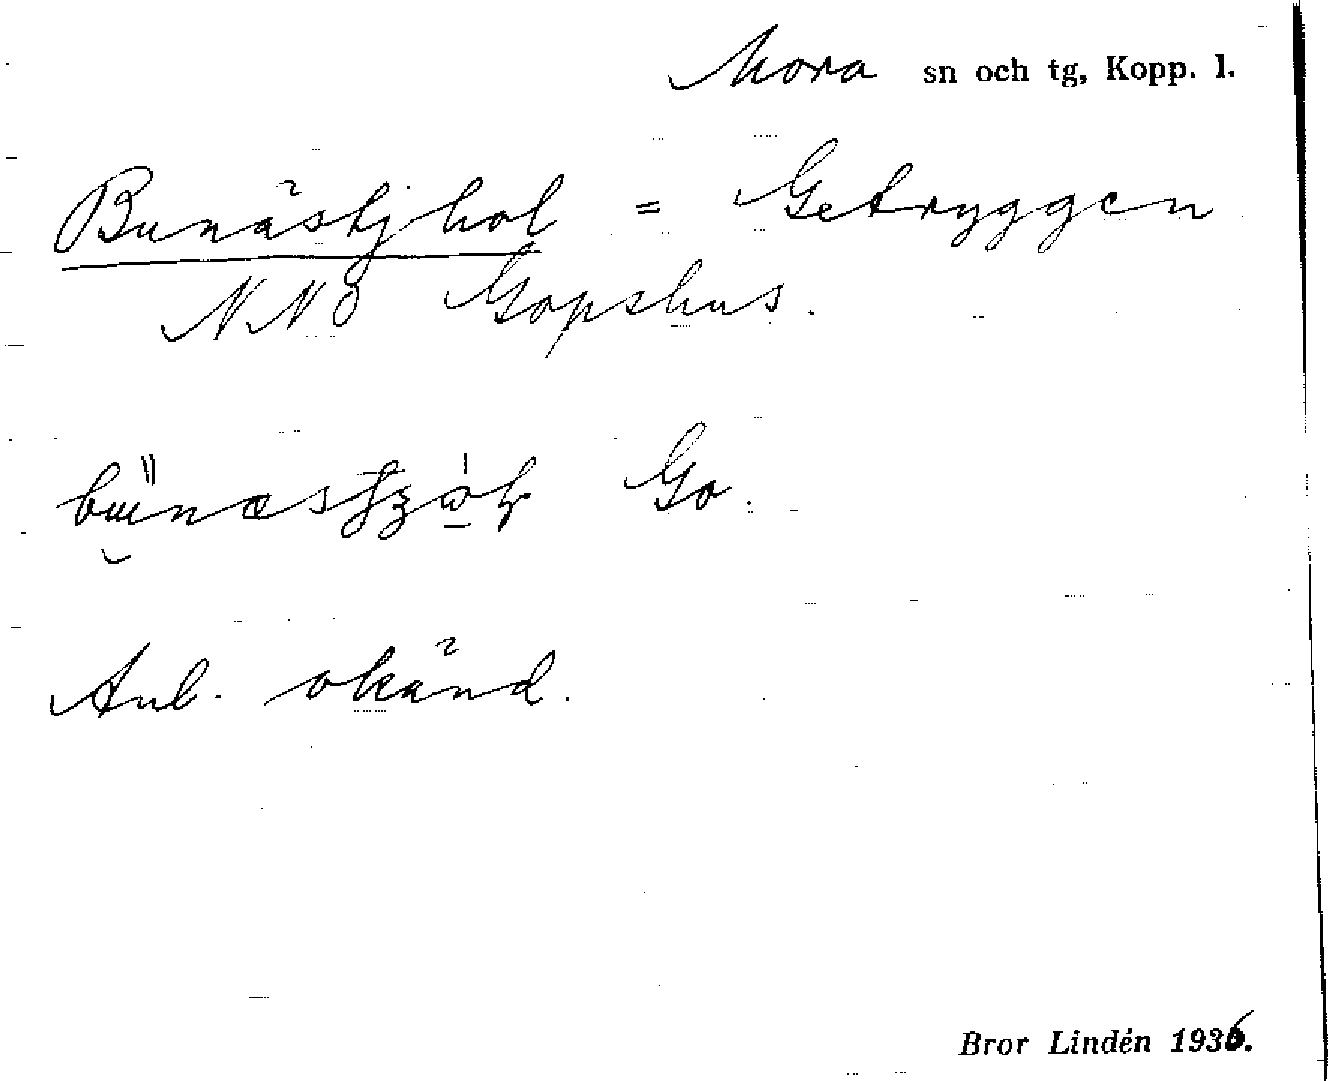 Mora sn och tg, Kopp. l.
Bunäskjhol = Getryggen
NNO Gopshus.
Go.
Anl. okänd.
Bror Lindén 1936.